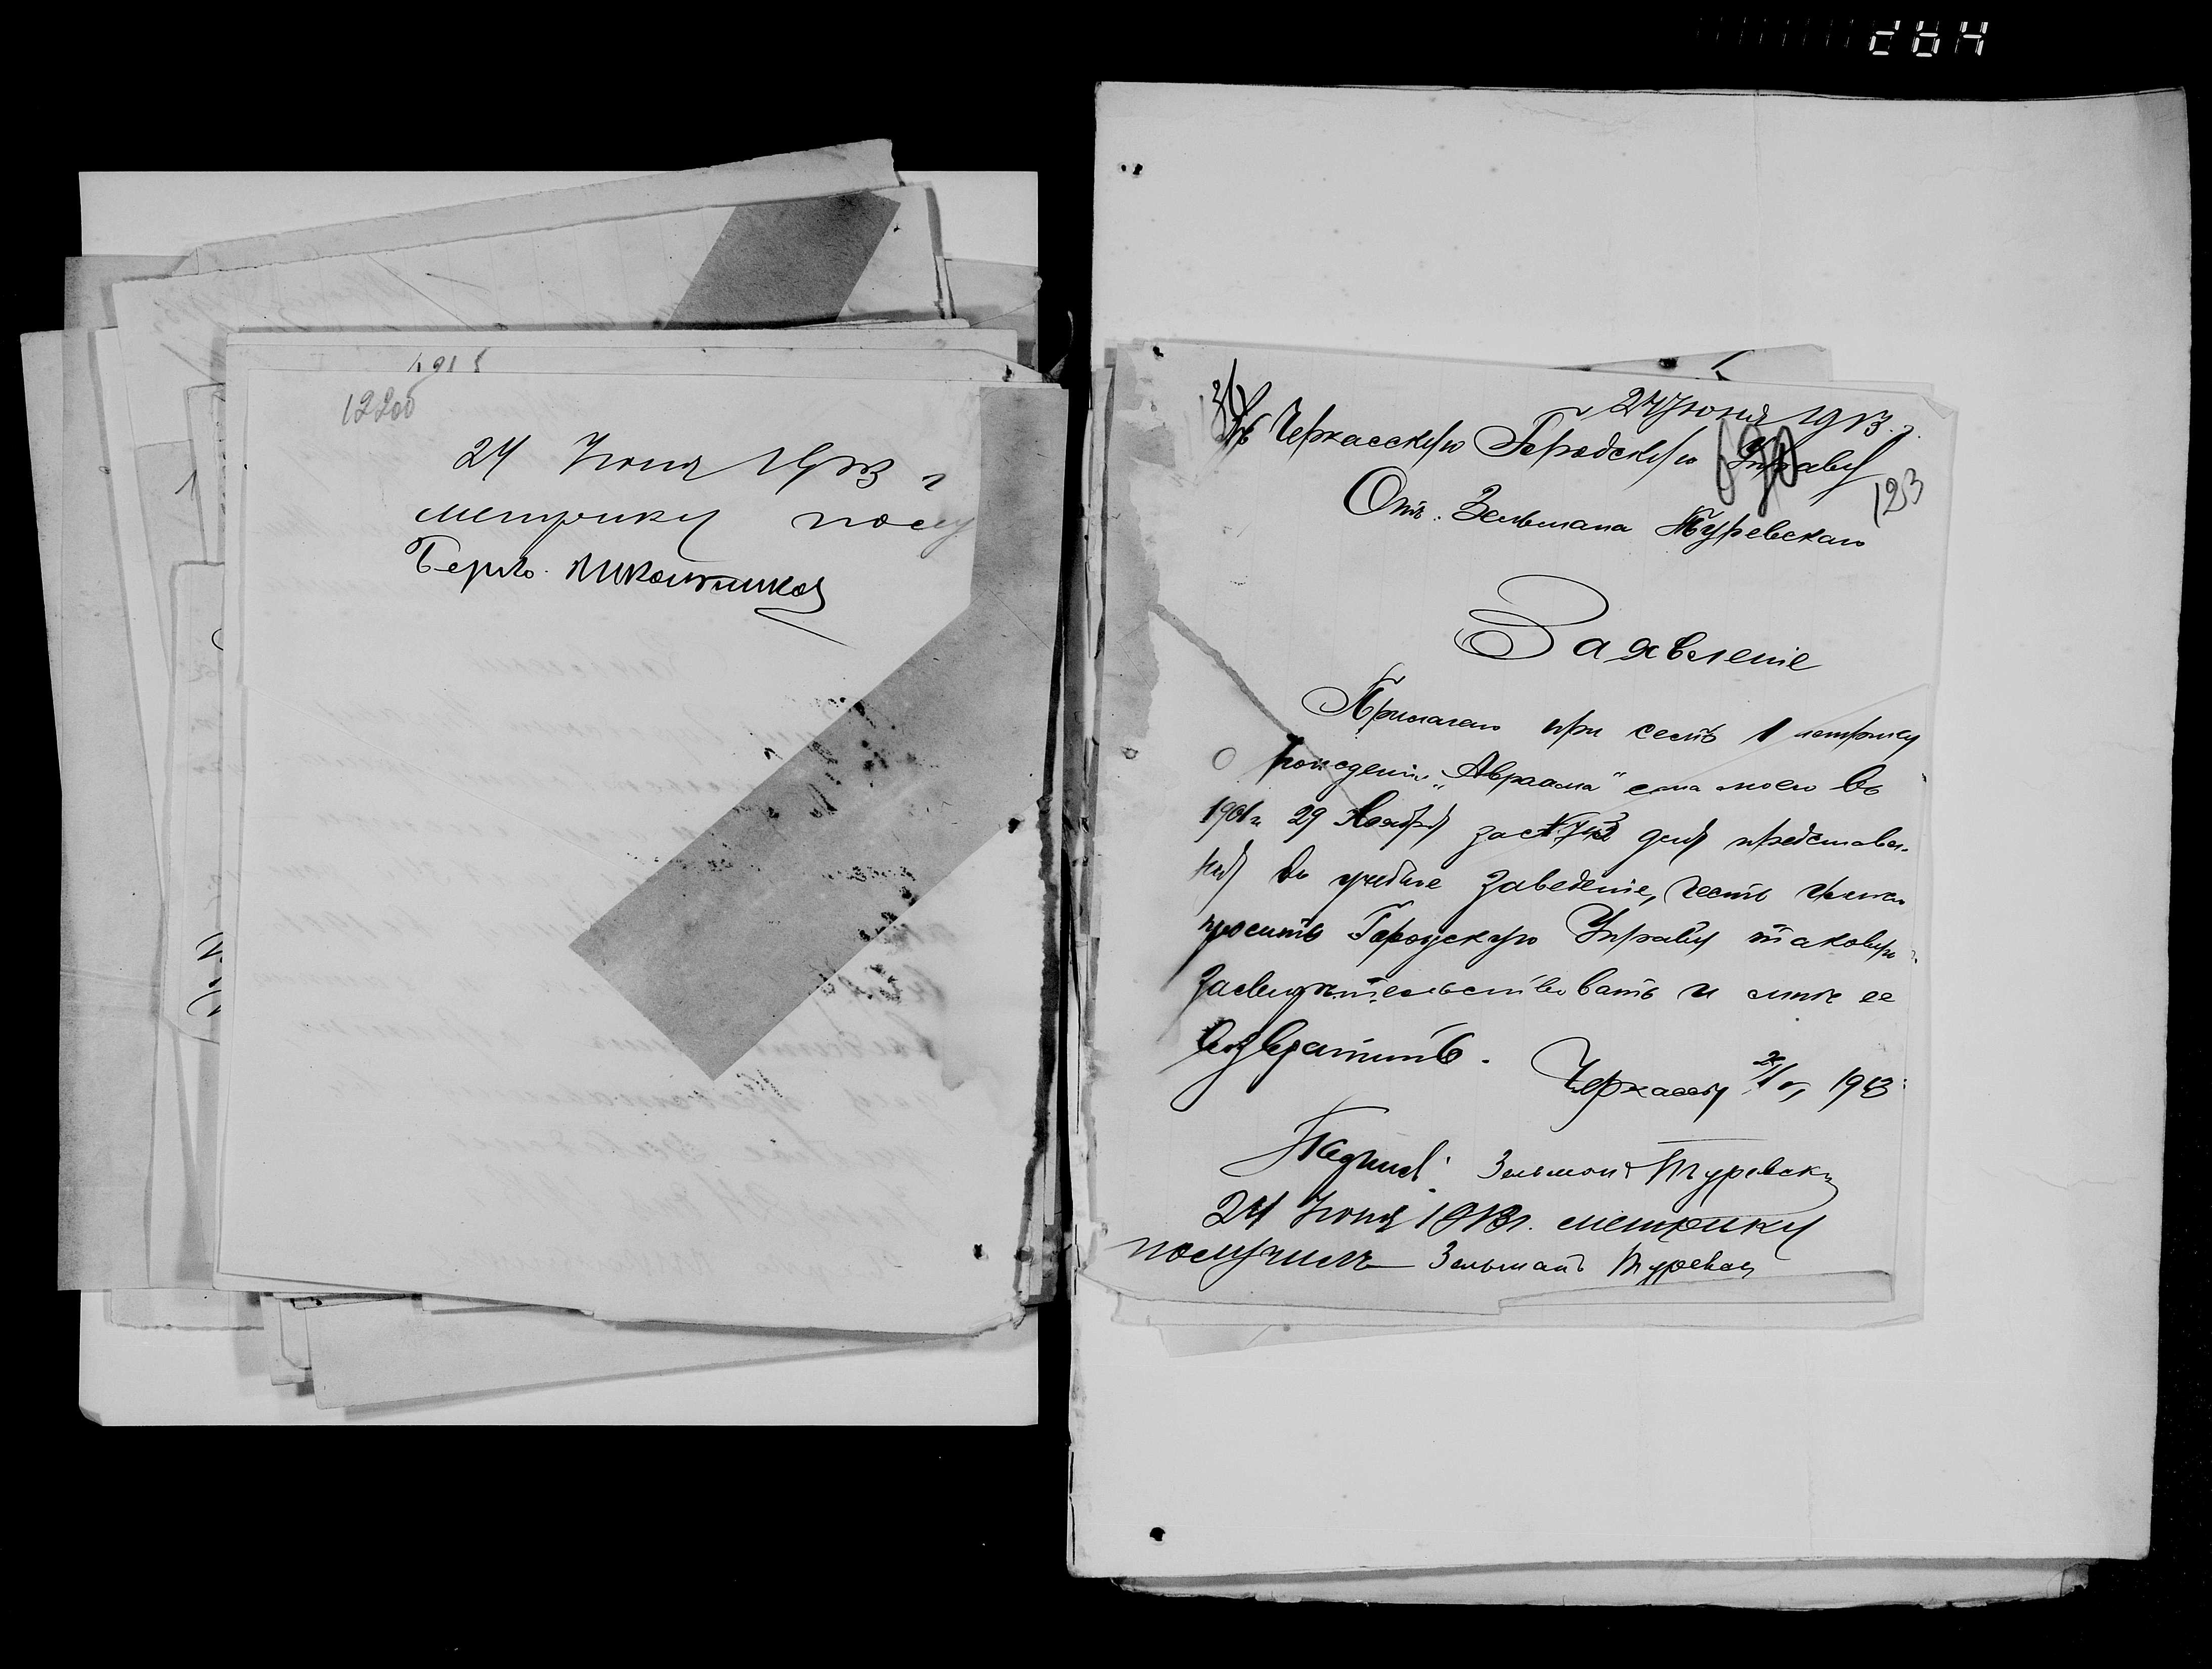 264
1915
12200
24 Июня 1913 г
метрику полу
Берко Школьников
24 Июня 1913 г.
Въ Черкасскую Городскую Управу
123
Отъ Зельмана Туревскаго
Заявленіе
Прилагаю при семъ 1 метрику
о рожденіи „Авраама" сына моего въ
1901 г. 29 Ноября за № для представле-
нія въ учебное заведеніе, честь имѣю
просить Городскую Управу таковую
засвидѣтельствовать и мнѣ ее
возвратить.
Черкассы 1913
Зельман Туревски
24 Июня 1913 г. метрику
получилъ Зельманъ Туревски